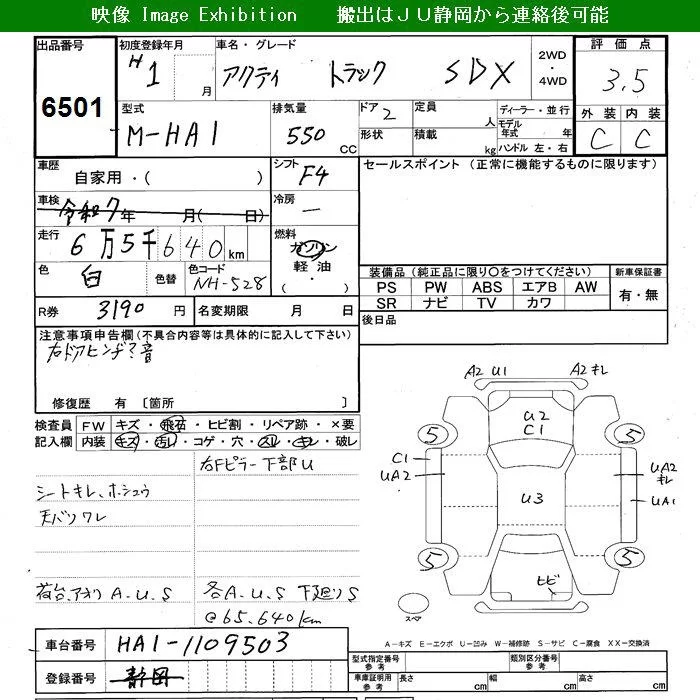 映像 Image Exhibition 搬出はJU静岡から連絡後可能
出品番号 初度登録年月 車名・グレード 2WD・4WD 評価点
6501 H1 月 アクティ トラック SDX 3.5
型式 排気量 ドア 定員 ディーラー・並行 外装 内装
M-HA1 550 CC 2 人 モデル年式 年 C C
形状 積載 kg ハンドル 左・右
車歴 自家用・( ) シフト F4 セールスポイント (正常に機能するものに限ります)
車検 令和7年 月( 日) 冷房 —
走行 6万5千640km 燃料 ガソリン
軽油
( ・ )
色 白 色替 色コード NH-528
装備品 (純正品に限り○をつけてください) 新車保証書
PS PW ABS エアB AW 有・無
SR ナビ TV カワ
R券 3190円 名変期限 月 日 後日品
注意事項申告欄 (不具合内容等は具体的に記入して下さい)
右ドアヒンヂ?音
修復歴 有 〔箇所 〕
検査員記入欄 FW キズ・飛石・ヒビ割・リペア跡・×要
内装 キズ・汚レ・コゲ・穴・スレ・キレ・破レ
右Fピラー下部U
シートキレ、ホシュウ
天バリワレ
荷台、アオリ A.U.S 各A.U.S 下廻りS
@65.640km
A2 U1 A2 キレ
U2
C1
5 5
C1
UA2 U3 UA2
キレ
UA1
5 5
ヒビ
スペア
車台番号 HA1-1109503
A-キズ E-エクボ U-凹み W-補修跡 S-サビ C-腐食 XX-交換済
登録番号 静岡
型式指定番号 参考 類別区分番号 参考
車庫証明用 参考 長さ cm 幅 cm 高さ cm